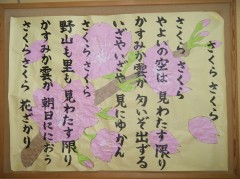 さくら さくら
さくら さくら
やよいの空は 見わたす限り
かすみか雲か 匂いぞ出ずる
いざや いざや 見にゆかん
さくら さくら
野山も里も 見わたす限り
かすみか雲か 朝日ににおう
さくら さくら 花ざかり